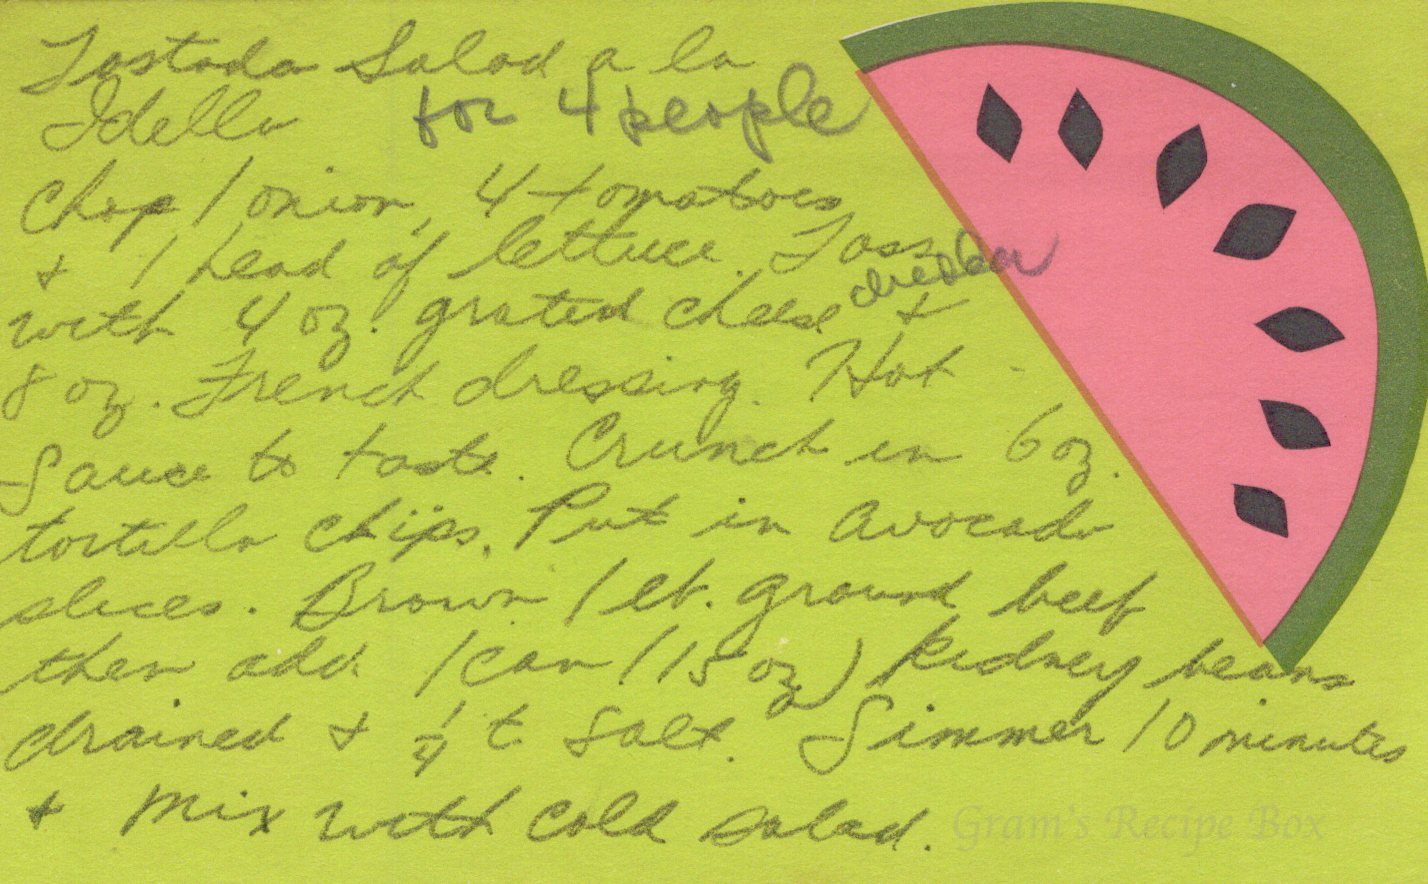 Tostada Salad a la
Idella for 4 people
Chop 1 onion, 4 tomatoes
+ 1 head of lettuce. Toss
with 4 oz. grated cheese cheddar +
8 oz. French dressing. Hot
Sauce to taste. Crunch in 6 oz.
tortilla chips. Put in avocado
slices. Brown 1 lb. ground beef
then add 1 can (15 oz) kidney beans
drained + 1/4 t. salt. Simmer 10 minutes
+ mix with cold salad.
Gram's Recipe Box